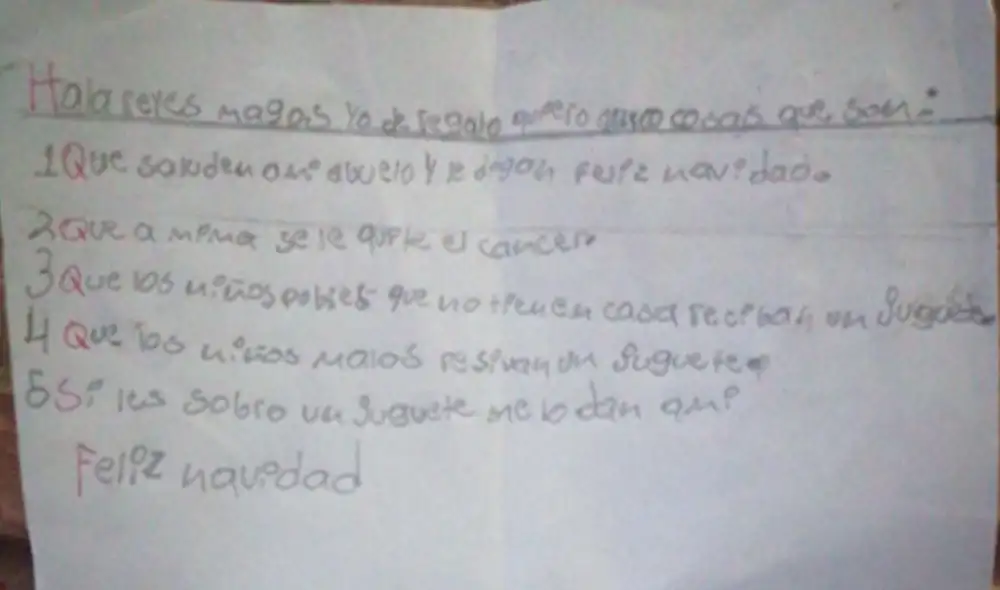 Hola reyes magos Yo de regalo quiero cosas que son:
1 Que saluden a mi abuelo y le digan feliz navidad.
2 Que a mi ma se le quite el cancer.
3 Que los niños pobres que no tienen casa reciban un Juguete
4 Que los niños malos resivan un Juguete.
5 Si les sobro un Juguete me lo dan a mi
Feliz navidad